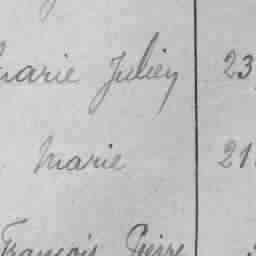 Marie Julien 23
Marie 21
François Pierre